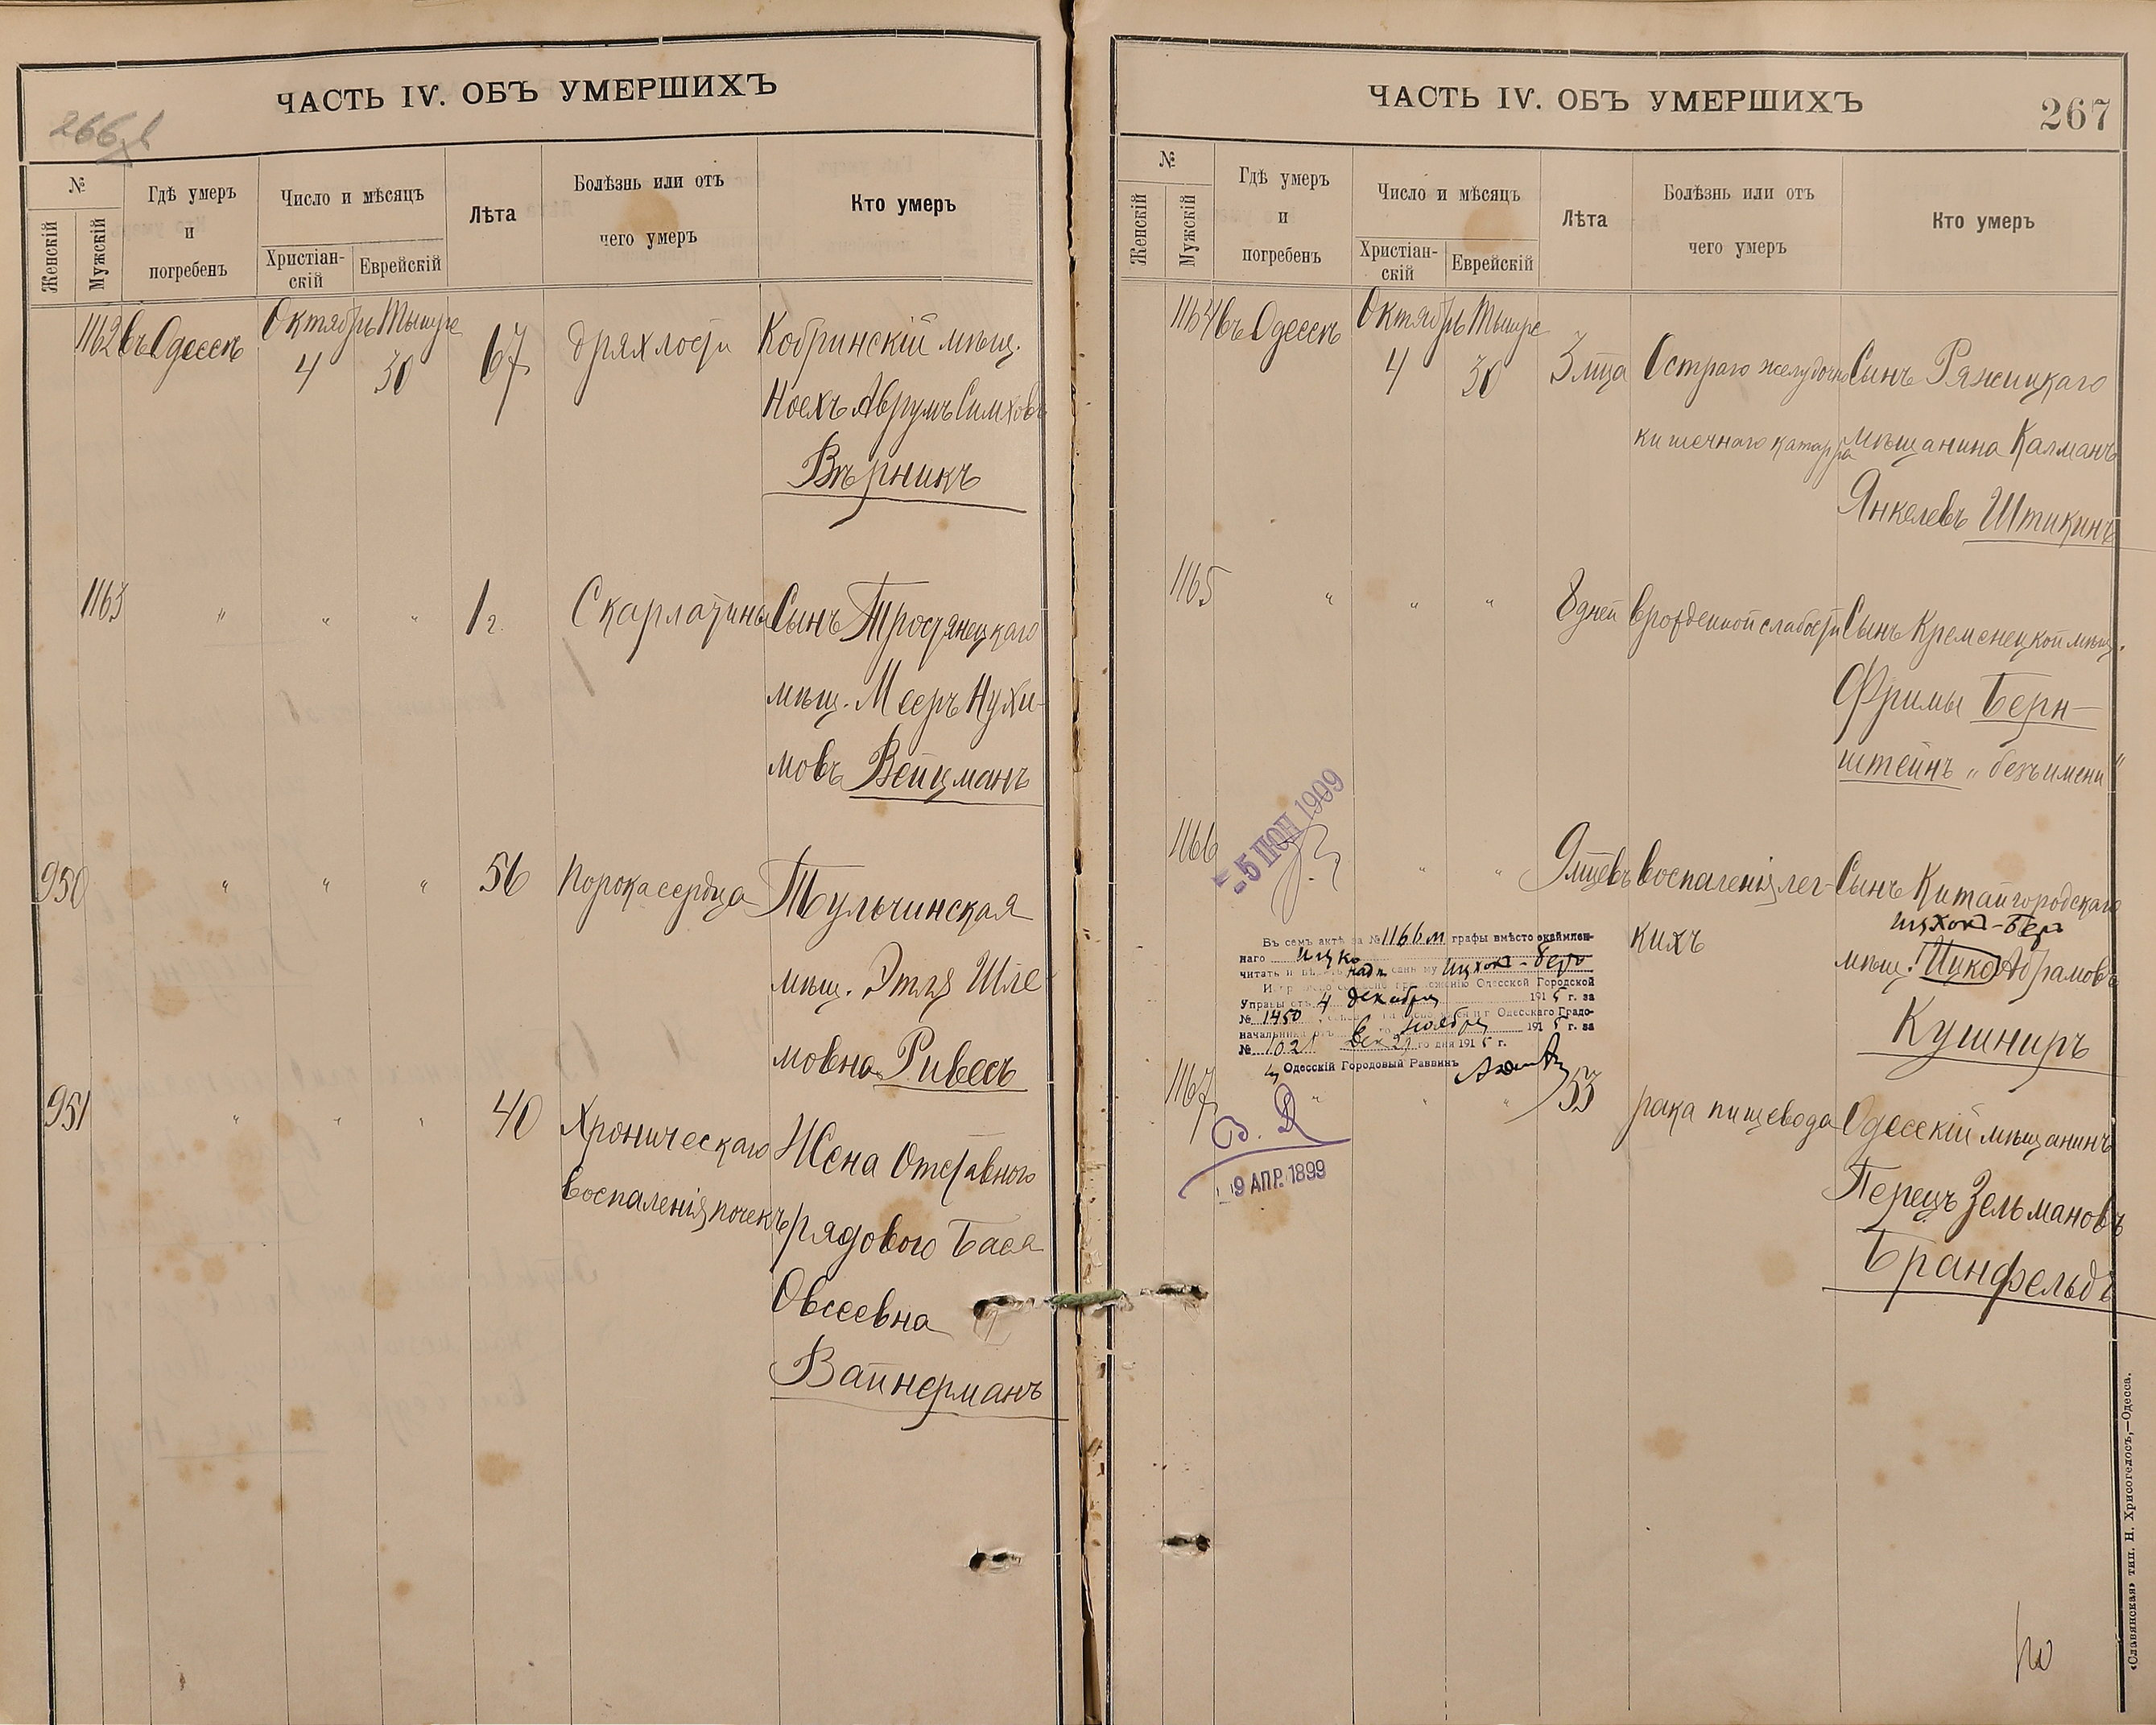 ЧАСТЬ IV. ОБЪ УМЕРШИХЪ
266
№
Женскій
Мужскій
Гдѣ умеръ
и
погребенъ
Число и мѣсяцъ
Христіан-
скій
Еврейскій
Лѣта
Болѣзнь или отъ
чего умеръ
Кто умеръ
1162 въ Одессѣ Октябрь Тышре 67 дряхлости Кобринскій мѣщ.
4 30 Ноехъ Аврумъ Симховъ
Вѣрникъ
1163 " " " 1 г. Скарлатины Сынъ Тростянецкаго
мѣщ. Мееръ Нухи-
мовъ Вейцманъ
950 " " " 56 Порока сердца Тульчинская
мѣщ. Этля Шле
мовна Ривесъ
951 " " " 40 Хроническаго Жена Отставного
воспаленія почекъ рядового Бася
Овсеевна
Вайнерманъ
ЧАСТЬ IV. ОБЪ УМЕРШИХЪ
267
№
Женскій
Мужскій
Гдѣ умеръ
и
погребенъ
Число и мѣсяцъ
Христіан-
скій
Еврейскій
Лѣта
Болѣзнь или отъ
чего умеръ
Кто умеръ
1164 въ Одессѣ Октябрь Тышре
4 30 3 мца Остраго желудочно Сынъ Ряжицкаго
кишечнаго катарра мѣщанина Калманъ
Янкелевъ Штикинъ
1165 " " " 8 дней врожденной слабости Сынъ Кременецкой мѣщ.
Фримы Берн-
штейнъ „безъ имени"
-5 ІЮН 1909
1166 " " 9 мцевъ воспаленія лег- Сынъ Китайгородскаго
кихъ Ицхок-Бер
мѣщ. Ицко Абрамовъ
Кушниръ
Въ семъ актѣ за № 1166 м графы вмѣсто окаймлен-
наго Ицко
читать Ицхок-Бер
Одесской Городской
Управы отъ 4 декабря 1915 г. за
№ 1450 Одесскаго Градо-
начальника ноября 1915 г. за
№ Дек 21 го дня 1915 г.
Одесскій Городовый Раввинъ
1167 " " " 53 рака пищевода Одесскій мѣщанинъ
Перецъ Зельмановъ
Бранфельдъ
В. Д
9 АПР. 1899
«Славянская» тип. Н. Хрисогелосъ,—Одесса.